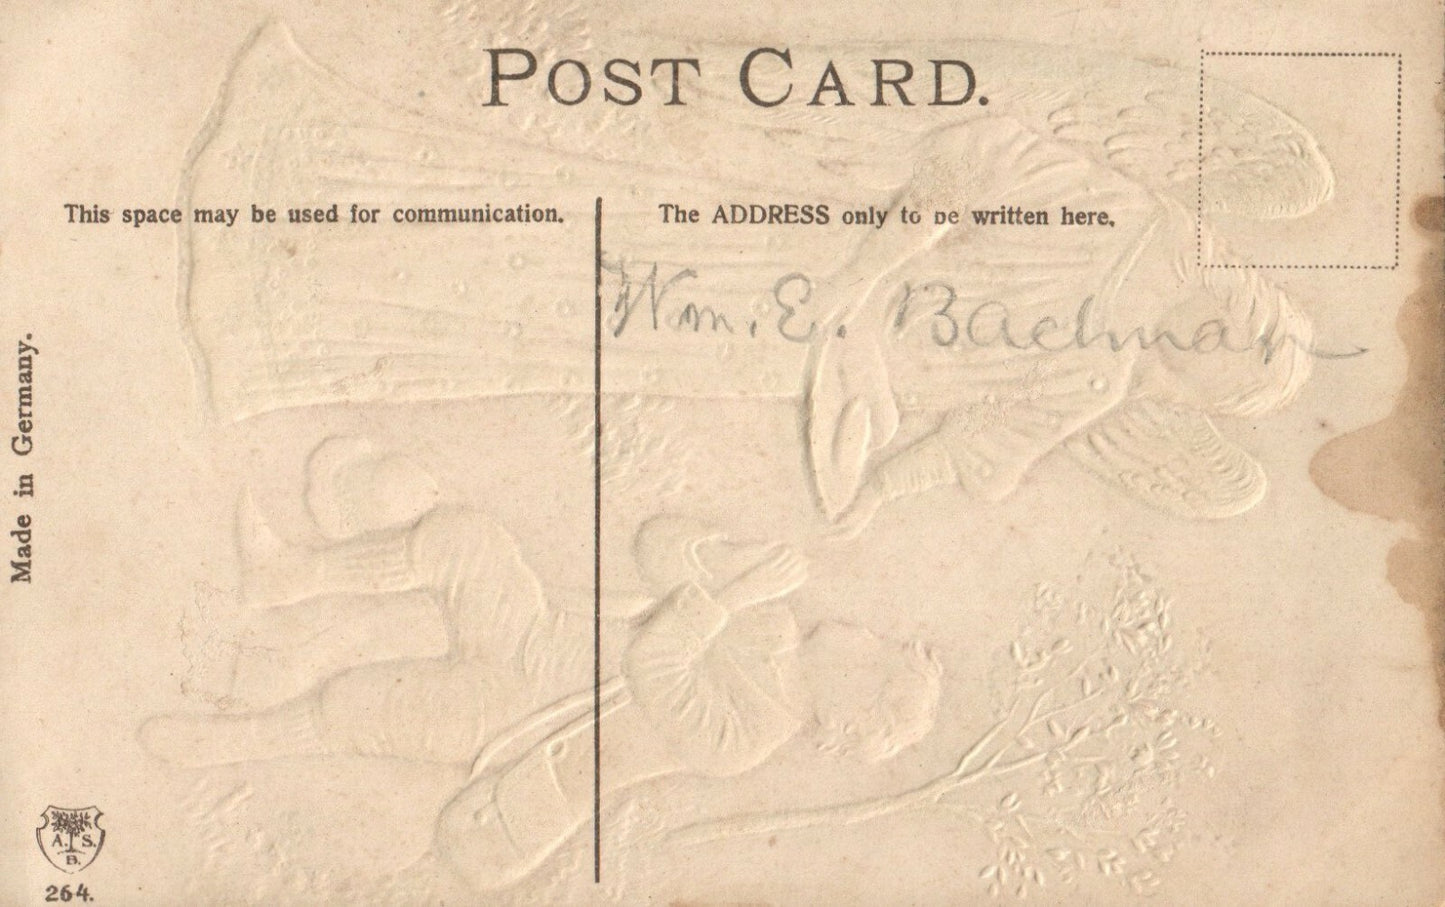 POST CARD.
This space may be used for communication.
The ADDRESS only to be written here,
Wm. E. Bachman
Made in Germany.
A. S.
B.
264.